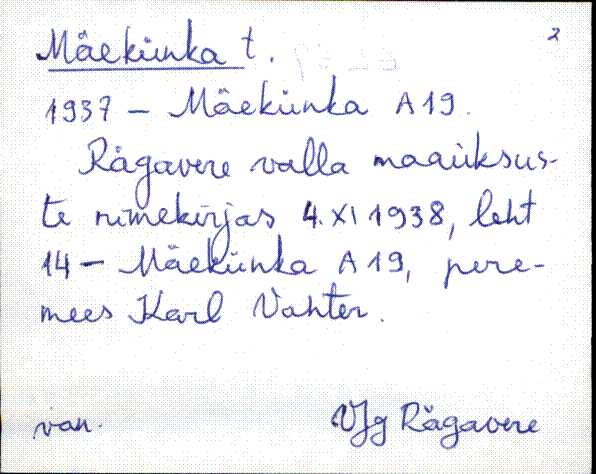 Mäekünka t. 2
1937 - Mäekünka A19.
Rägavere valla maaüksus-
te nimekirjas 4.XI 1938, leht
14 - Mäekünka A19, pere-
mees Karl Vahter.
van. VJg Rägavere